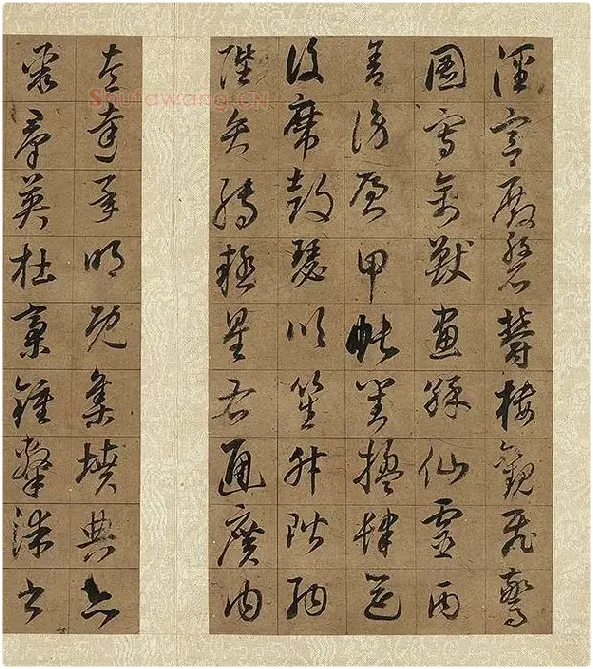 涇宮殿盤鬱樓觀飛驚
圖寫禽獸畫綵仙靈丙
舍傍啟甲帳對楹肆筵
設席鼓瑟吹笙升階納
陛弁轉疑星右通廣內
左達承明既集墳典亦
聚羣英杜稾鍾隸漆書
Shufawang.CN